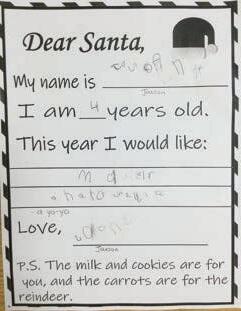 Dear Santa,
My name is
Jaxson
I am 4 years old.
This year I would like:
- a yo-yo
Love,
Jaxson
P.S. The milk and cookies are for
you, and the carrots are for the
reindeer.